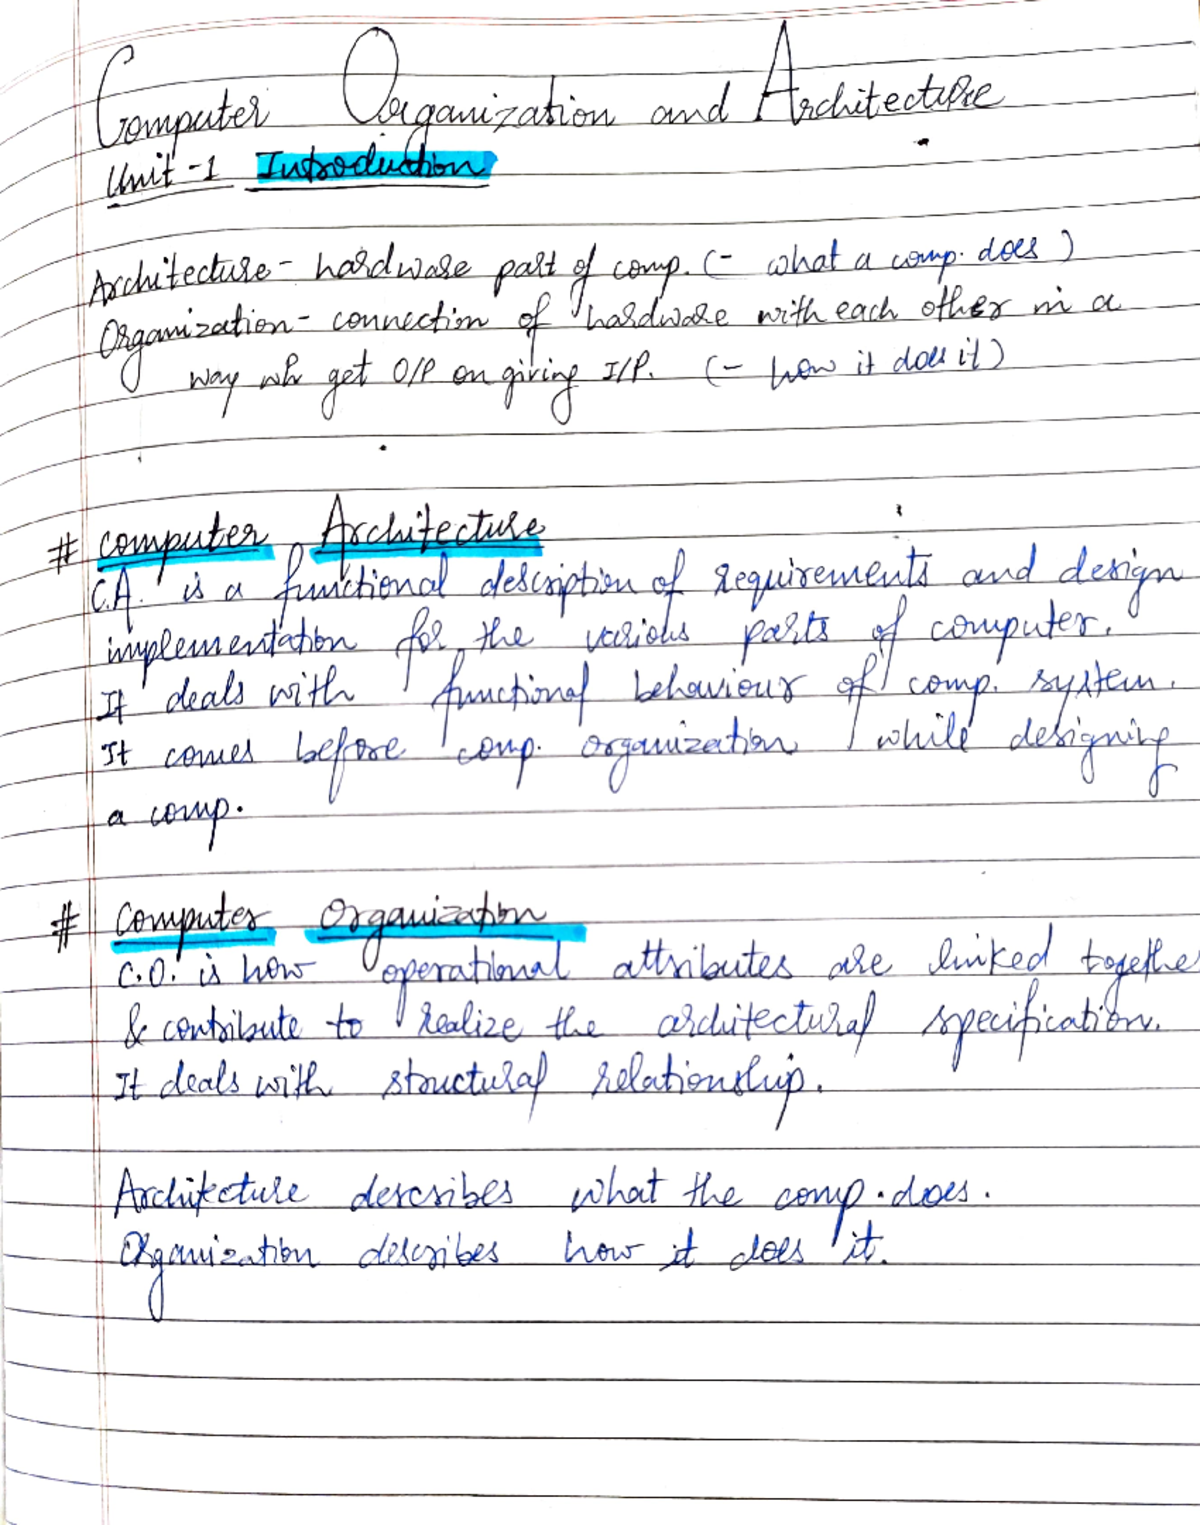 Computer Organization and Architecture
Unit-1 Introduction
Architecture - hardware part of comp. (- what a comp. does)
Organization - connection of hardware with each other in a
way get O/P on giving I/P. (- how it does it)
# Computer Architecture
C.A. is a functional description of requirements and design
implementation for the various parts of computer.
It deals with functional behaviour of comp. system.
It comes before comp. organization while designing
a comp.
# Computer Organization
C.O. is how operational attributes are linked together
& contribute to realize the architectural specification.
It deals with structural relationship.
Architecture describes what the comp. does.
Organization describes how it does it.